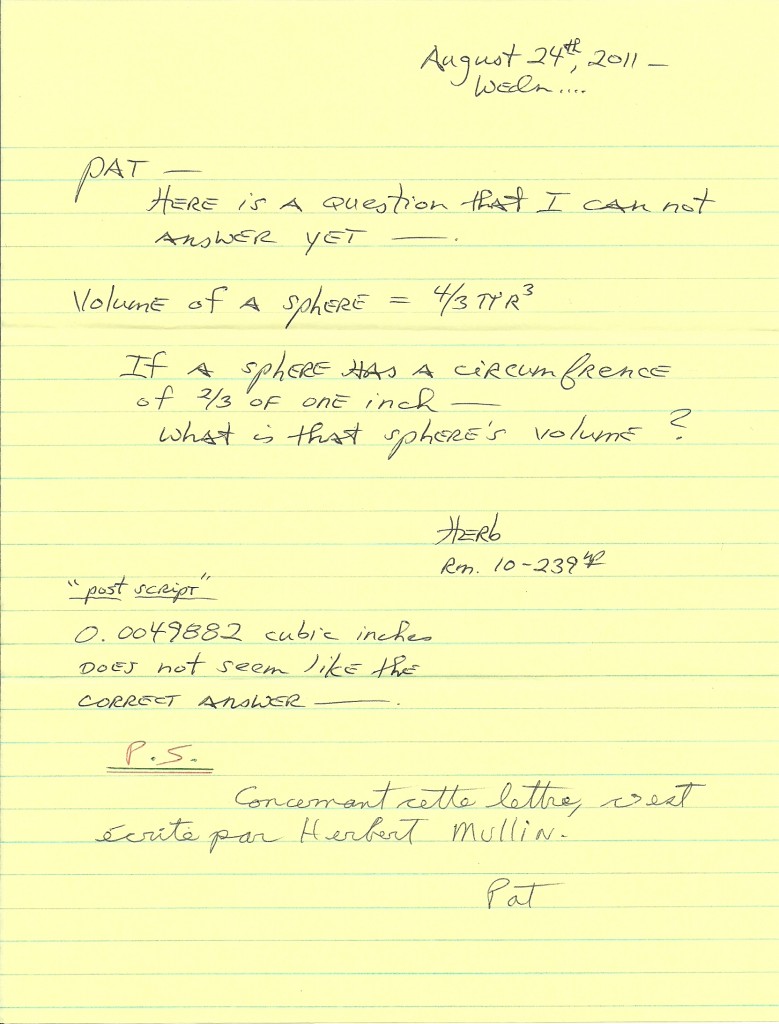 August 24th, 2011 —
Wedn....
PAT —
HERE is A question that I can not
ANSWER YET —.
Volume of A sphere = 4/3 πR³
If A sphere HAS A circumfrence
of 2/3 OF ONE inch —
What is that sphere's volume ?
Herb
Rm. 10-239
"post script"
0.0049882 cubic inches
DOES not seem like the
CORRECT ANSWER —.
P.S.
Concernant cette lettre, c'est
écrite par Herbert Mullin.
Pat